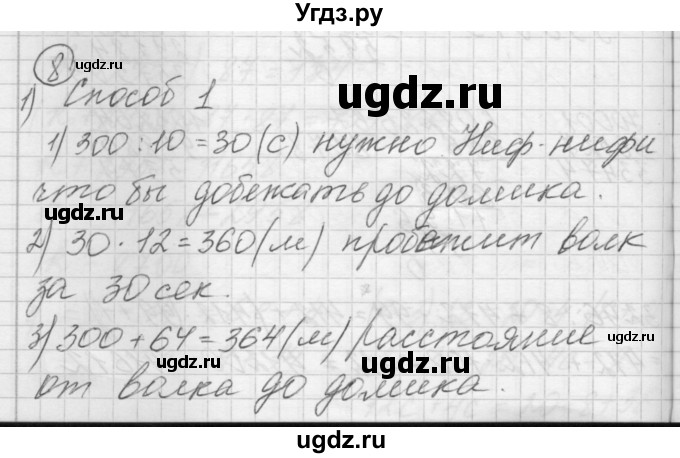 Угдз.ру
8
ugdz.ru
1) Способ 1
ugdz.ru
1) 300 : 10 = 30 (с) нужно Ниф-нифи
что бы добежать до домика.
ugdz.ru
2) 30 · 12 = 360 (м) пробежит волк
за 30 сек.
ugdz.ru
3) 300 + 64 = 364 (м) Расстояние
ugdz.ru
ugdz.ru
от волка до домика.
ugdz.ru